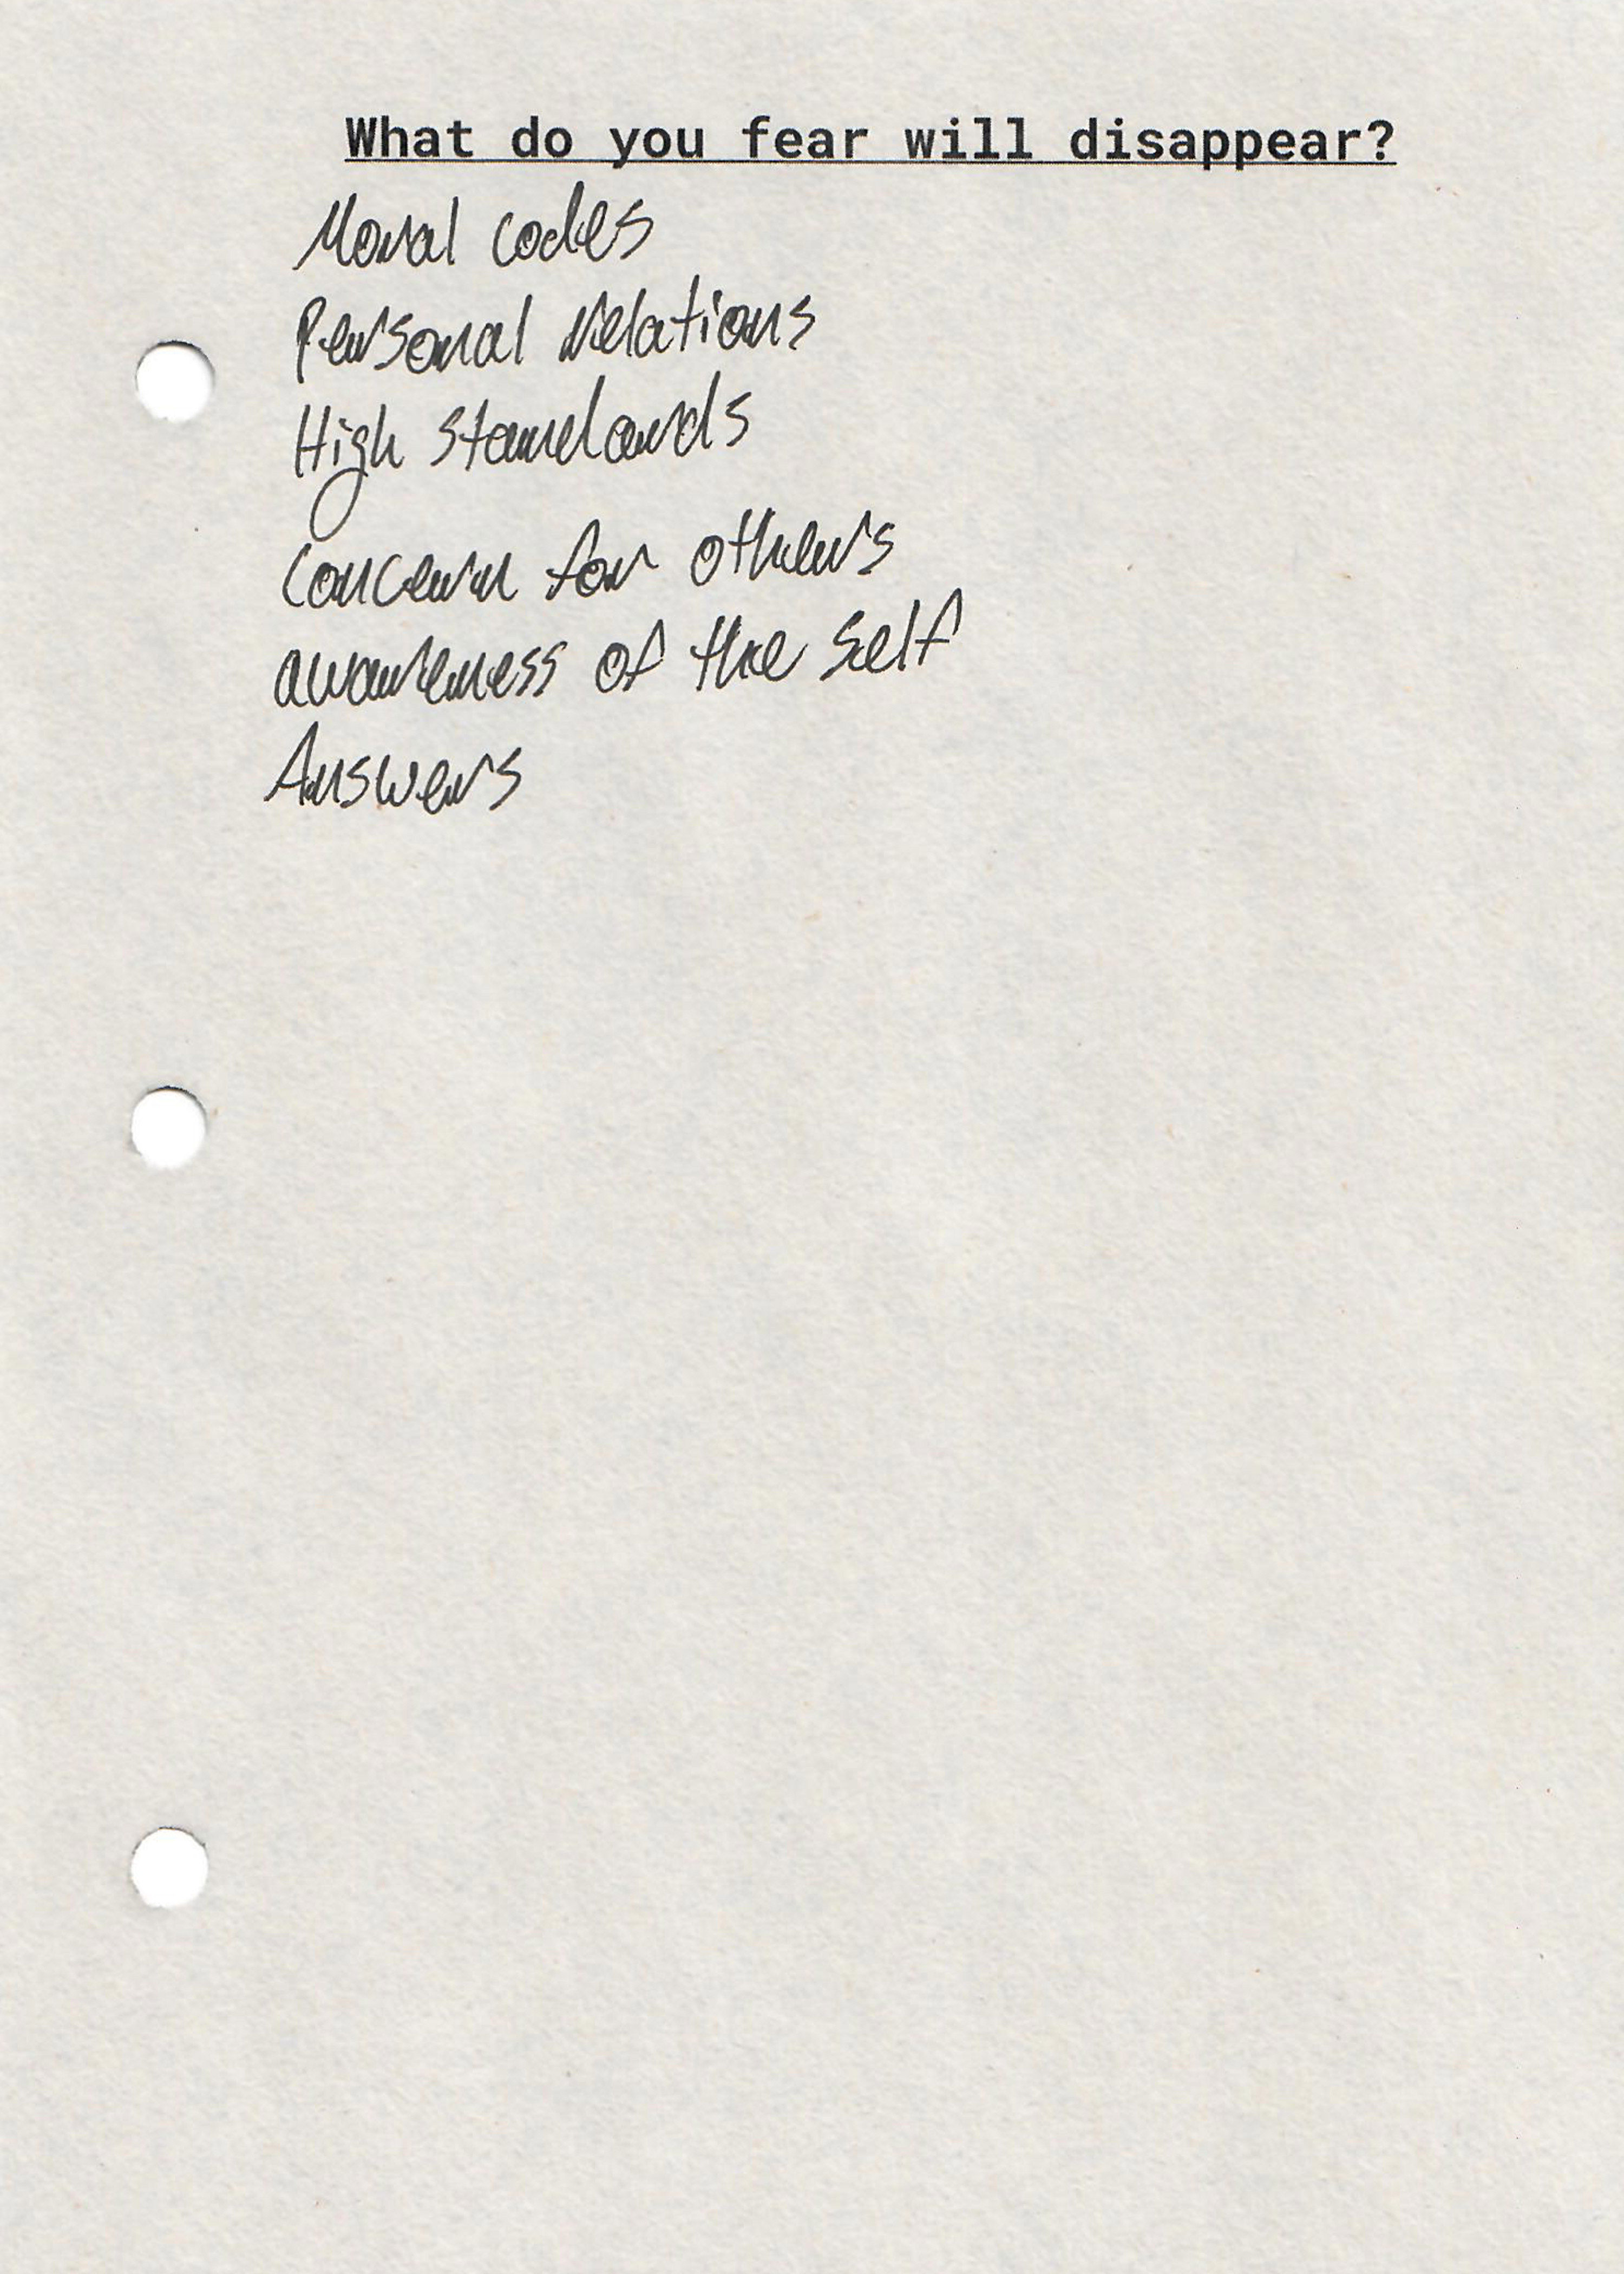 What do you fear will disappear?
Moral codes
Personal relations
High standards
Concern for others
awareness of the self
Answers